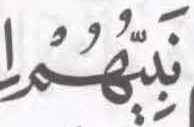 نَبِيُّهُمْ